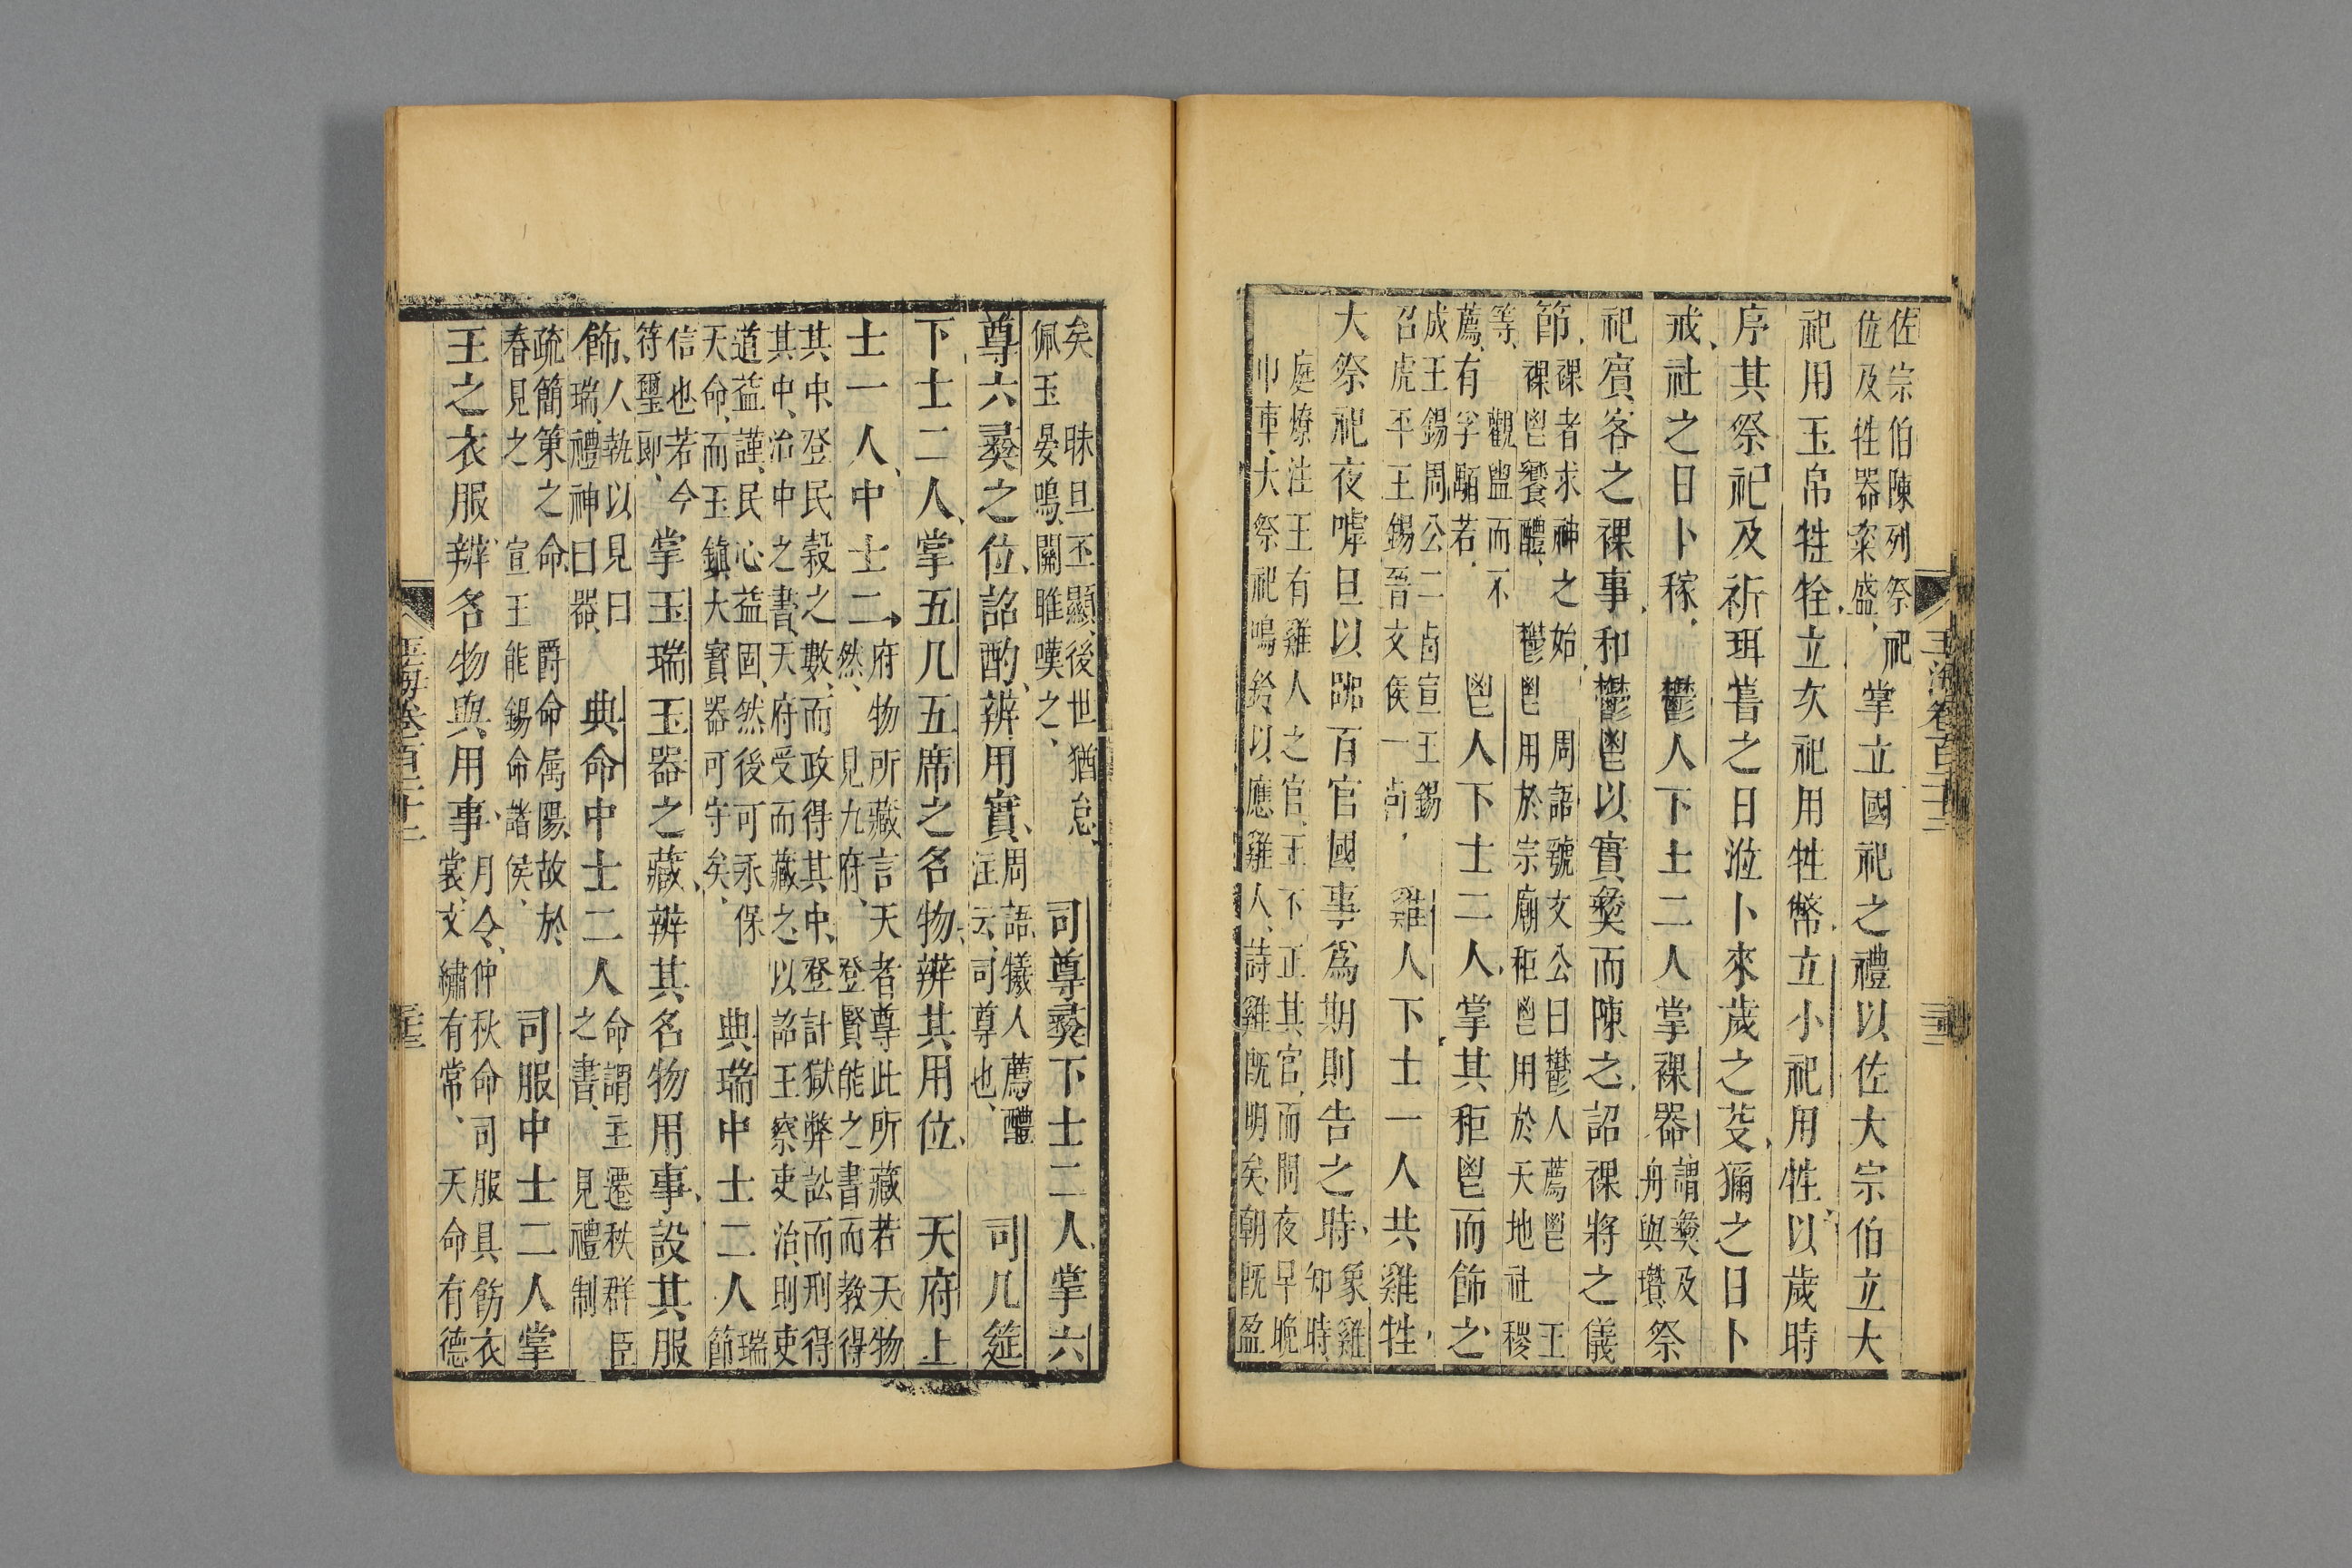 佐宗伯陳列祭祀
佐及牲器粢盛
掌立國祀之禮以佐大宗伯立大
祀用玉帛牲牷立次祀用牲幣立小祀用牲以歲時
序其祭祀及祈珥甞之日涖卜來歲之芟獮之日卜
戒社之日卜稼鬱人下士二人掌祼器
謂彜及
舟與瓚
祭
祀賓客之祼事和鬱鬯以實彜而陳之詔祼將之儀
節
祼者求神之始
周語虢文公曰鬱人薦鬯
王
祼鬯饗醴
鬱鬯用於宗廟秬鬯用於天地社稷
等
觀盥而不
薦有孚顒若
鬯人下士二人掌其秬鬯而飾之
成王錫周公二卣宣王錫
召虎平王錫晉文侯一卣
雞人下士一人共雞牲
大祭祀夜嘑旦以嘂百官國事爲期則告之時
象雞
知時
庭燎注王有雞人之官王不正其官而問夜早晚
巾車大祭祀鳴鈴以應雞人詩雞旣明矣朝旣盈
玉海卷百二十二
矣
昧旦丕顯後世猶怠
佩玉晏鳴關雎嘆之
司尊彜下士二人掌六
尊六彜之位詔酌辨用實
周語犧人薦醴
注云司尊也
司几筵
下士二人掌五几五席之名物辨其用位
天府上
士一人中士二
府物所藏言天者尊此所藏若天物
然
見九府
登賢能之書而敎得
其中登民穀之數而政得其中登計獄弊訟而刑得
其中治中之書天府受而藏之以詔王察吏治則吏
道益謹民心益固然後可永保
天命而玉鎮大寶器可守矣
典瑞中士二人
瑞
節
信也若今
符璽郎
掌玉瑞玉器之藏辨其名物用事設其服
飾
人執以見曰
瑞禮神曰器
典命中士二人
命謂王遷秩群臣
之書
見禮制
疏簡策之命
爵命属陽故於
春見之
宣王能錫命諸侯
司服中士二人掌
王之衣服辨名物與用事
月令仲秋命司服具飭衣
裳文繡有常
天命有德
玉海卷百二十二